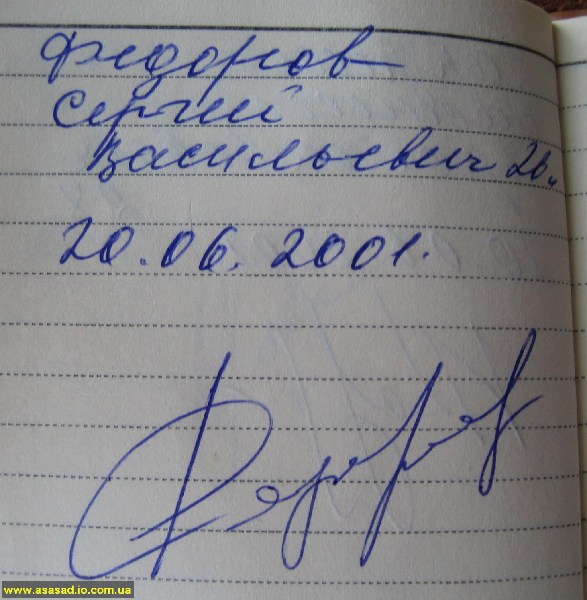 Федоров
Сергей
Васильевич
20.06.2001.
www.asasad.io.com.ua